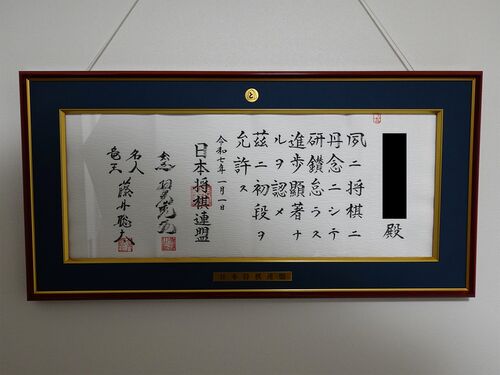 と
殿
夙ニ将棋ニ
丹念ニシテ
研鑽怠ラス
進歩顕著ナ
ルヲ認メ
茲ニ初段ヲ
允許ス
令和七年一月一日
日本将棋連盟
会長 羽生善治
名人
竜王 藤井聡太
日本将棋連盟